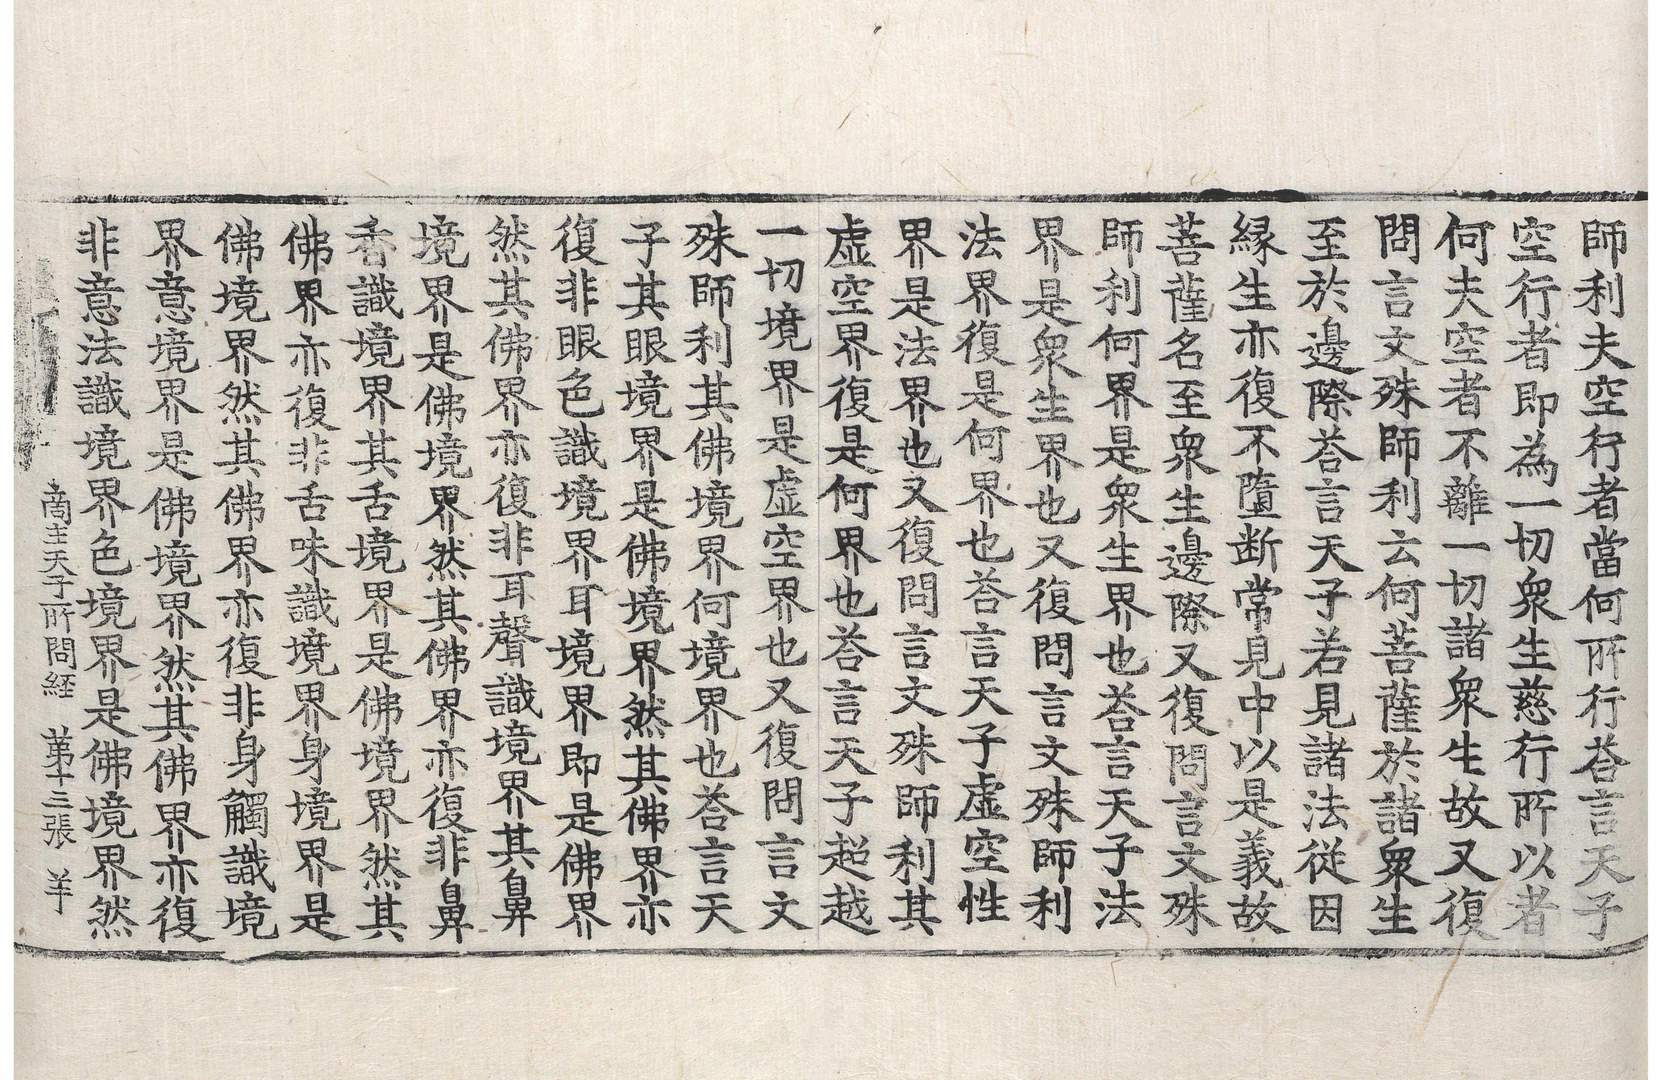 師利夫空行者當何所行荅言天子
空行者即為一切衆生慈行所以者
何夫空者不離一切諸衆生故又復
問言文殊師利云何菩薩於諸衆生
至於邊際荅言天子若見諸法從因
縁生亦復不墮断常見中以是義故
菩薩名至衆生邊際又復問言文殊
師利何界是衆生界也荅言天子法
界是衆生界也又復問言文殊師利
法界復是何界也荅言天子虚空性
界是法界也又復問言文殊師利其
虚空界復是何界也荅言天子超越
一切境界是虚空界也又復問言文
殊師利其佛境界何境界也荅言天
子其眼境界是佛境界然其佛界亦
復非眼色識境界耳境界即是佛界
然其佛界亦復非耳聲識境界其鼻
境界是佛境界然其佛界亦復非鼻
香識境界其舌境界是佛境界然其
佛界亦復非舌味識境界身境界是
佛境界然其佛界亦復非身觸識境
界意境界是佛境界然其佛界亦復
非意法識境界色境界是佛境界然
商主天子所問経 第十三張 羊